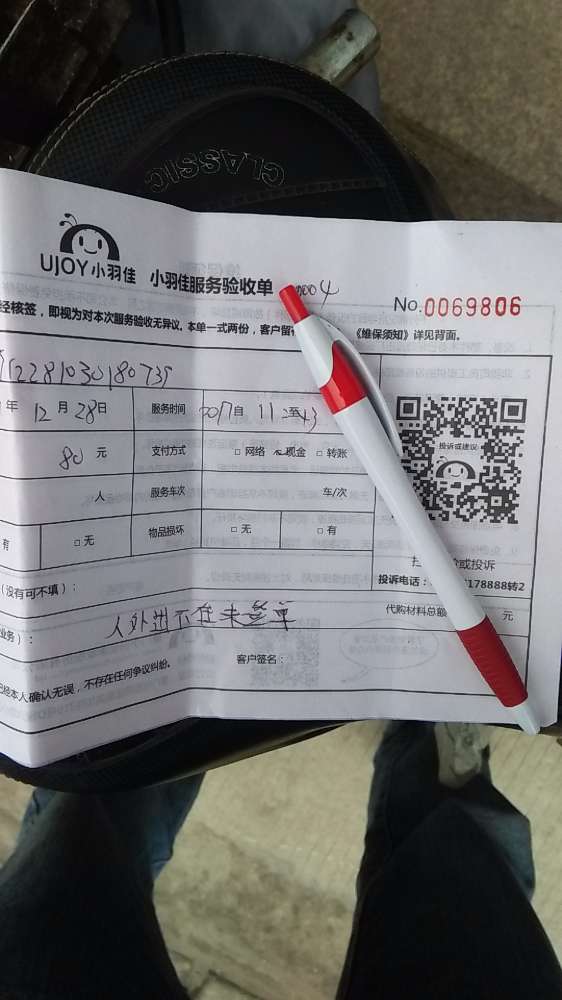 CLASSIC
UJOY小羽佳 小羽佳服务验收单 0004
No.0069806
经核签，即视为对本次服务验收无异议。本单一式两份，客户留存 《维保须知》详见背面。
12281030180735
年 12 月 28 日 服务时间 2017 自 11 至 43
80 元 支付方式 □ 网络 现金 □ 转账
投诉或建议
人 服务车次 车/次
有 □ 无 物品损坏 □ 无 □ 有
或投诉
投诉电话： 178888转2
（没有可不填）： 代购材料总额 元
业务）： 人外出不在未签单
客户签名：
本人确认无误，不存在任何争议纠纷。